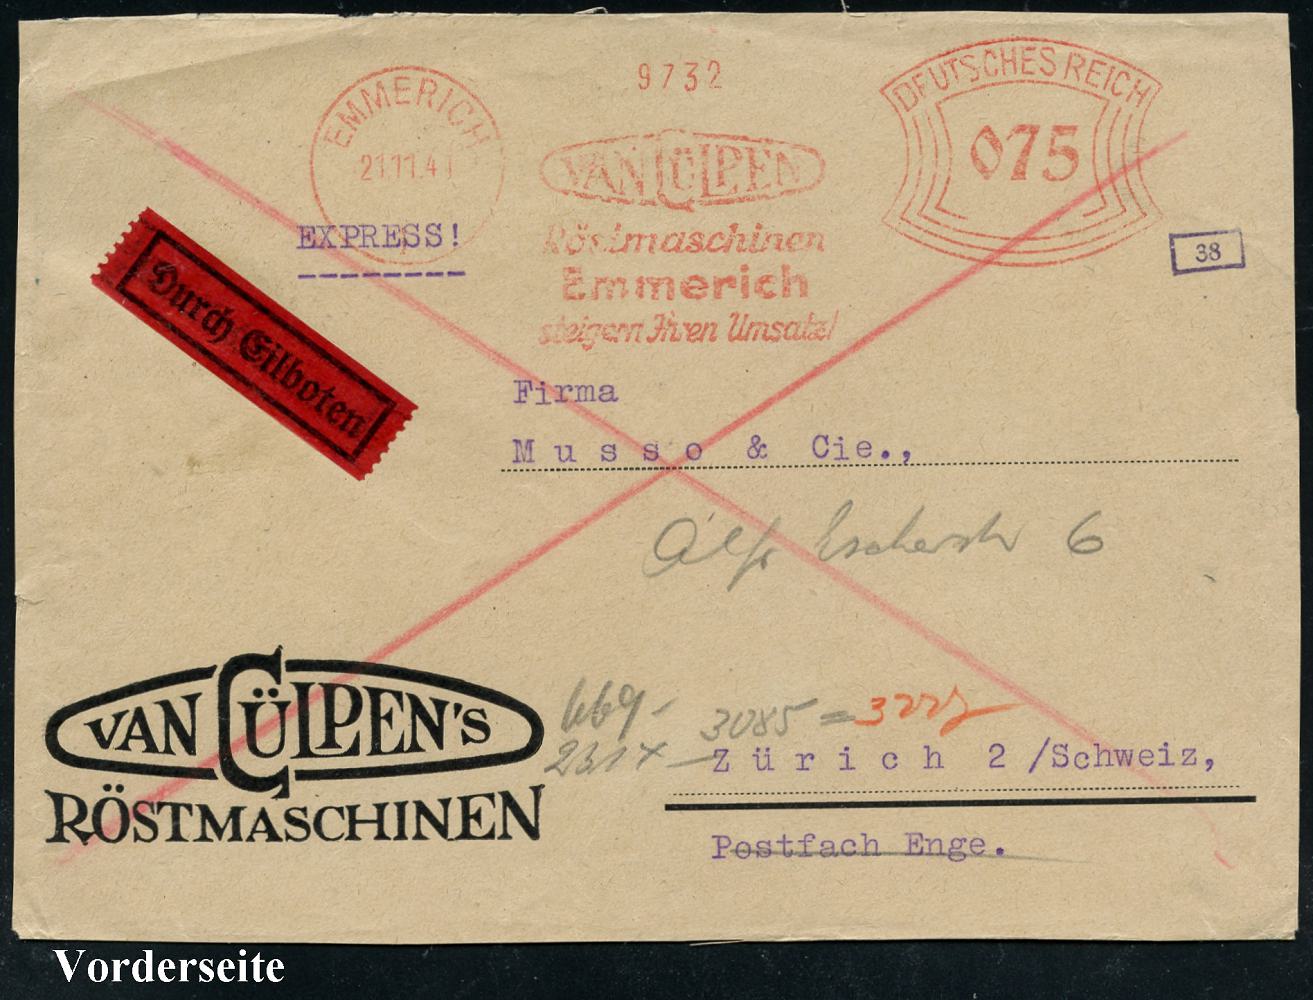 9732
EMMERICH
21.11.41
VAN GÜLPEN
Röstmaschinen
Emmerich
steigern Ihren Umsatz!
DEUTSCHES REICH
075
38
EXPRESS!
Durch Eilboten
Firma
Musso & Cie.,
6
VAN GÜLPEN'S
RÖSTMASCHINEN
669-
3085 =
Zürich 2 /Schweiz,
Postfach Enge.
Vorderseite